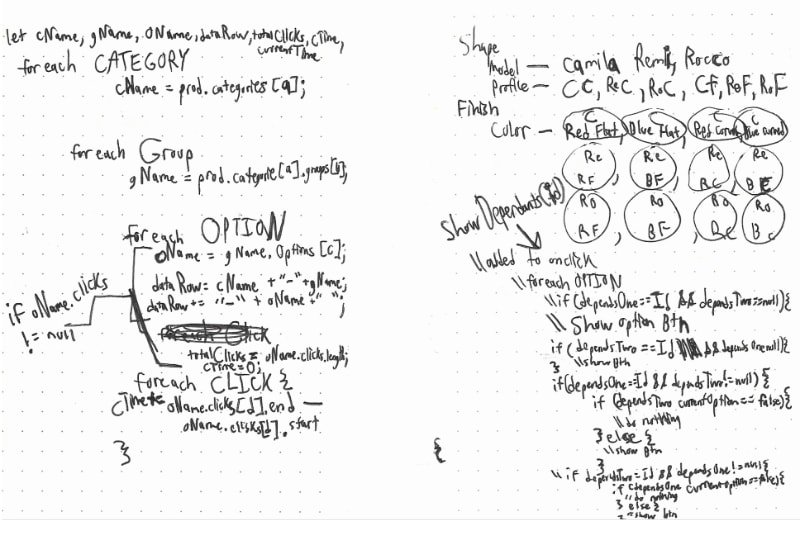 let cName, gName, oName, dataRow, totalClicks, cTime,
currentTime
foreach CATEGORY
cName = prod.categories[a];
foreach Group
gName = prod.categorie[a].groups[b];
foreach OPTION
oName = gName.options[c];
dataRow = cName + "-" + gName;
dataRow += "-" + oName + " ";
if oName.clicks
!= null
foreach Click
totalClicks = oName.clicks.length;
cTime = 0;
foreach CLICK {
cTime += oName.clicks[d].end -
oName.clicks[d].start
}
Shape
Model — Camila Remi, Rocco
Profile — CC, ReC, RoC, CF, ReF, RoF
Finish
Color — C Red Flat, C Blue Flat, C Red Curved, C Blue curved
Re RF, Re BF, Re RC, Re BC
Ro RF, Ro BF, Ro RC, Ro BC
ShowDependants(id)
\\added to onclick
\\foreach OPTION
\\if (dependsOne==Id && dependsTwo==null){
\\ Show option Btn
if (dependsTwo==Id && dependsOne null){
} \\show Btn
if(dependsOne==Id && dependsTwo!=null){
if (dependsTwo currentOption == false){
\\do nothing
} else {
\\show Btn
}
{
\\if dependsTwo=Id && dependsOne!=null{
if (dependsOne currentoption==false){
\\do nothing
} else{
} \\show btn